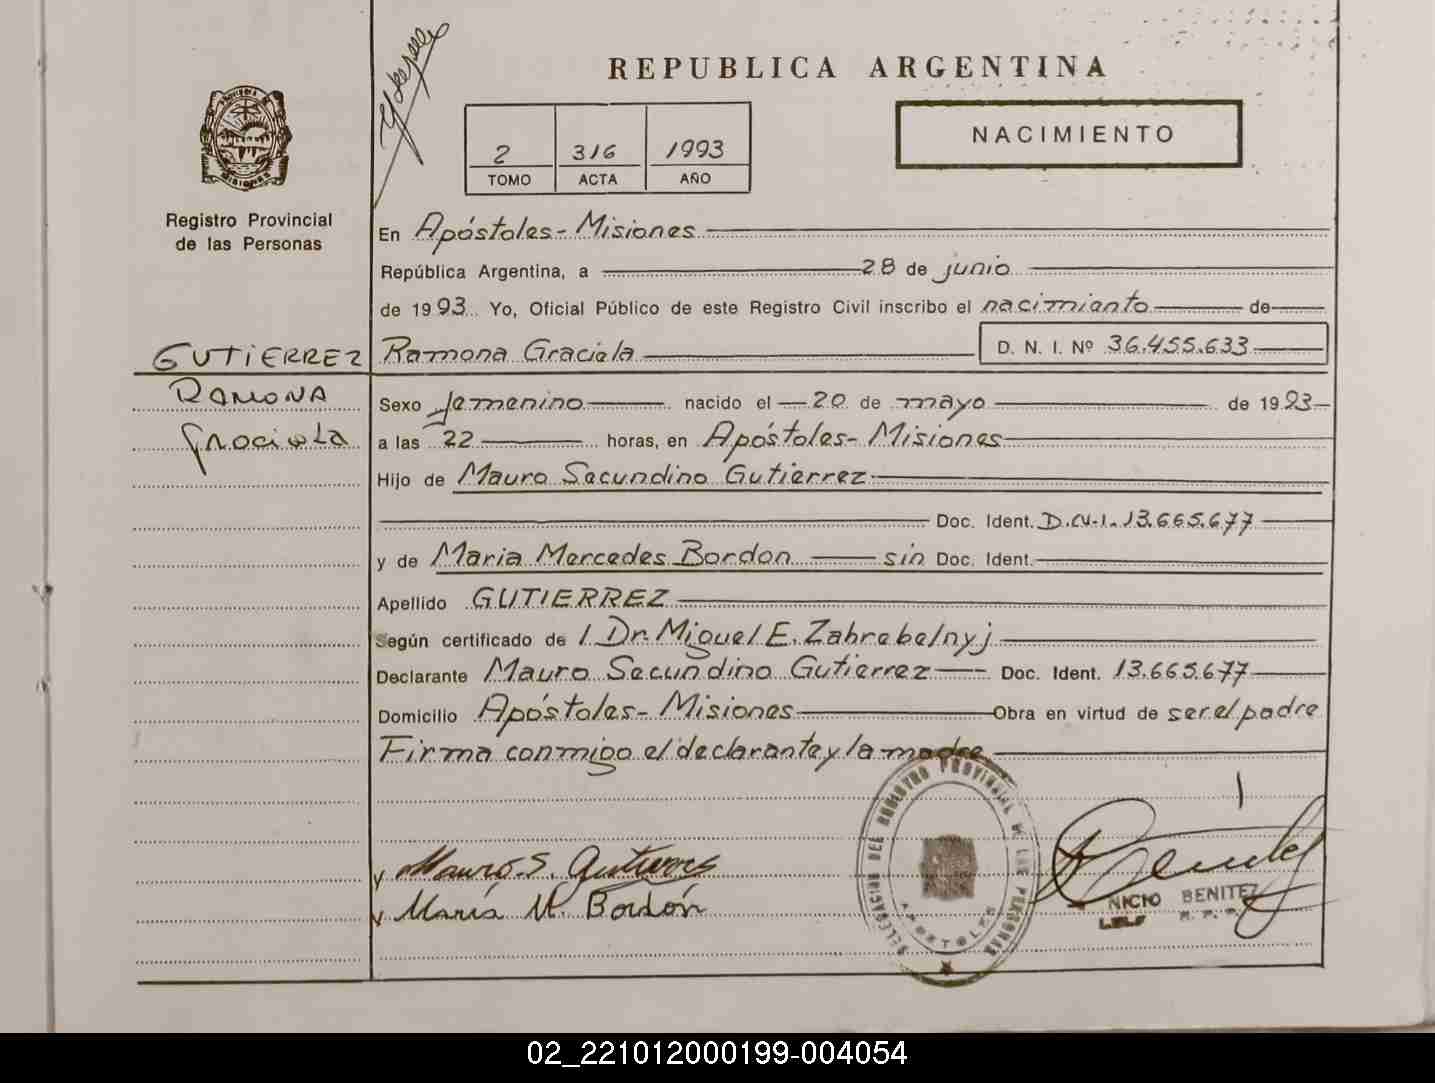 REPUBLICA ARGENTINA
NACIMIENTO
2 316 1993
TOMO ACTA AÑO
Registro Provincial
de las Personas
En Apóstoles - Misiones
República Argentina, a 28 de junio
de 1993 Yo, Oficial Público de este Registro Civil inscribo el nacimiento de
GUTIERREZ Ramona Graciela D. N. I. Nº 36.455.633
RAMONA
Graciela
Sexo femenino nacido el 20 de mayo de 1993
a las 22 horas, en Apóstoles - Misiones
Hijo de Mauro Secundino Gutierrez
Doc. Ident. D.N.I. 13.665.677
y de Maria Mercedes Bordon sin Doc. Ident.
Apellido GUTIERREZ
Según certificado de l Dr. Miguel E. Zabrebelnyj
Declarante Mauro Secundino Gutierrez Doc. Ident. 13.665.677
Domicilio Apóstoles - Misiones Obra en virtud de ser el padre
Firma conmigo el declarante y la madre
Mauro S. Gutierrez
María M. Bordón
DELEGACION DEL REGISTRO PROVINCIAL DE LAS PERSONAS
APOSTOLES
NICIO BENITEZ
02_221012000199-004054